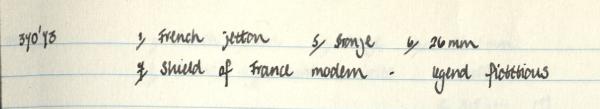 370'73 1/ French jetton 5/ Bronze 6/ 26mm
7/ Shield of France modern - legend fictitious